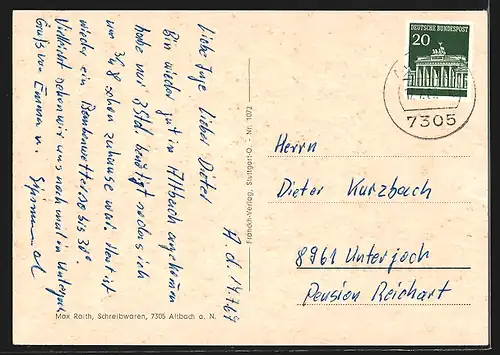 A d. 14.7.67
Liebe Inge Lieber Dieter
Bin wieder gut in Altbach angekommen
habe nur 3 Std. benötigt so dass ich
um 3/4 8 schon zuhause war. Heut ist
wieder ein Bombenwetterse bis 30°
Vielleicht sehen wir uns noch mal in Unterjoch
Gruß von Emma u.
DEUTSCHE BUNDESPOST
20
7305
Herrn
Dieter Kurzbach
8961 Unterjoch
Pension Reichart
Franckh-Verlag, Stuttgart-O. - Nr. 1072
Max Raith, Schreibwaren, 7305 Altbach a. N.